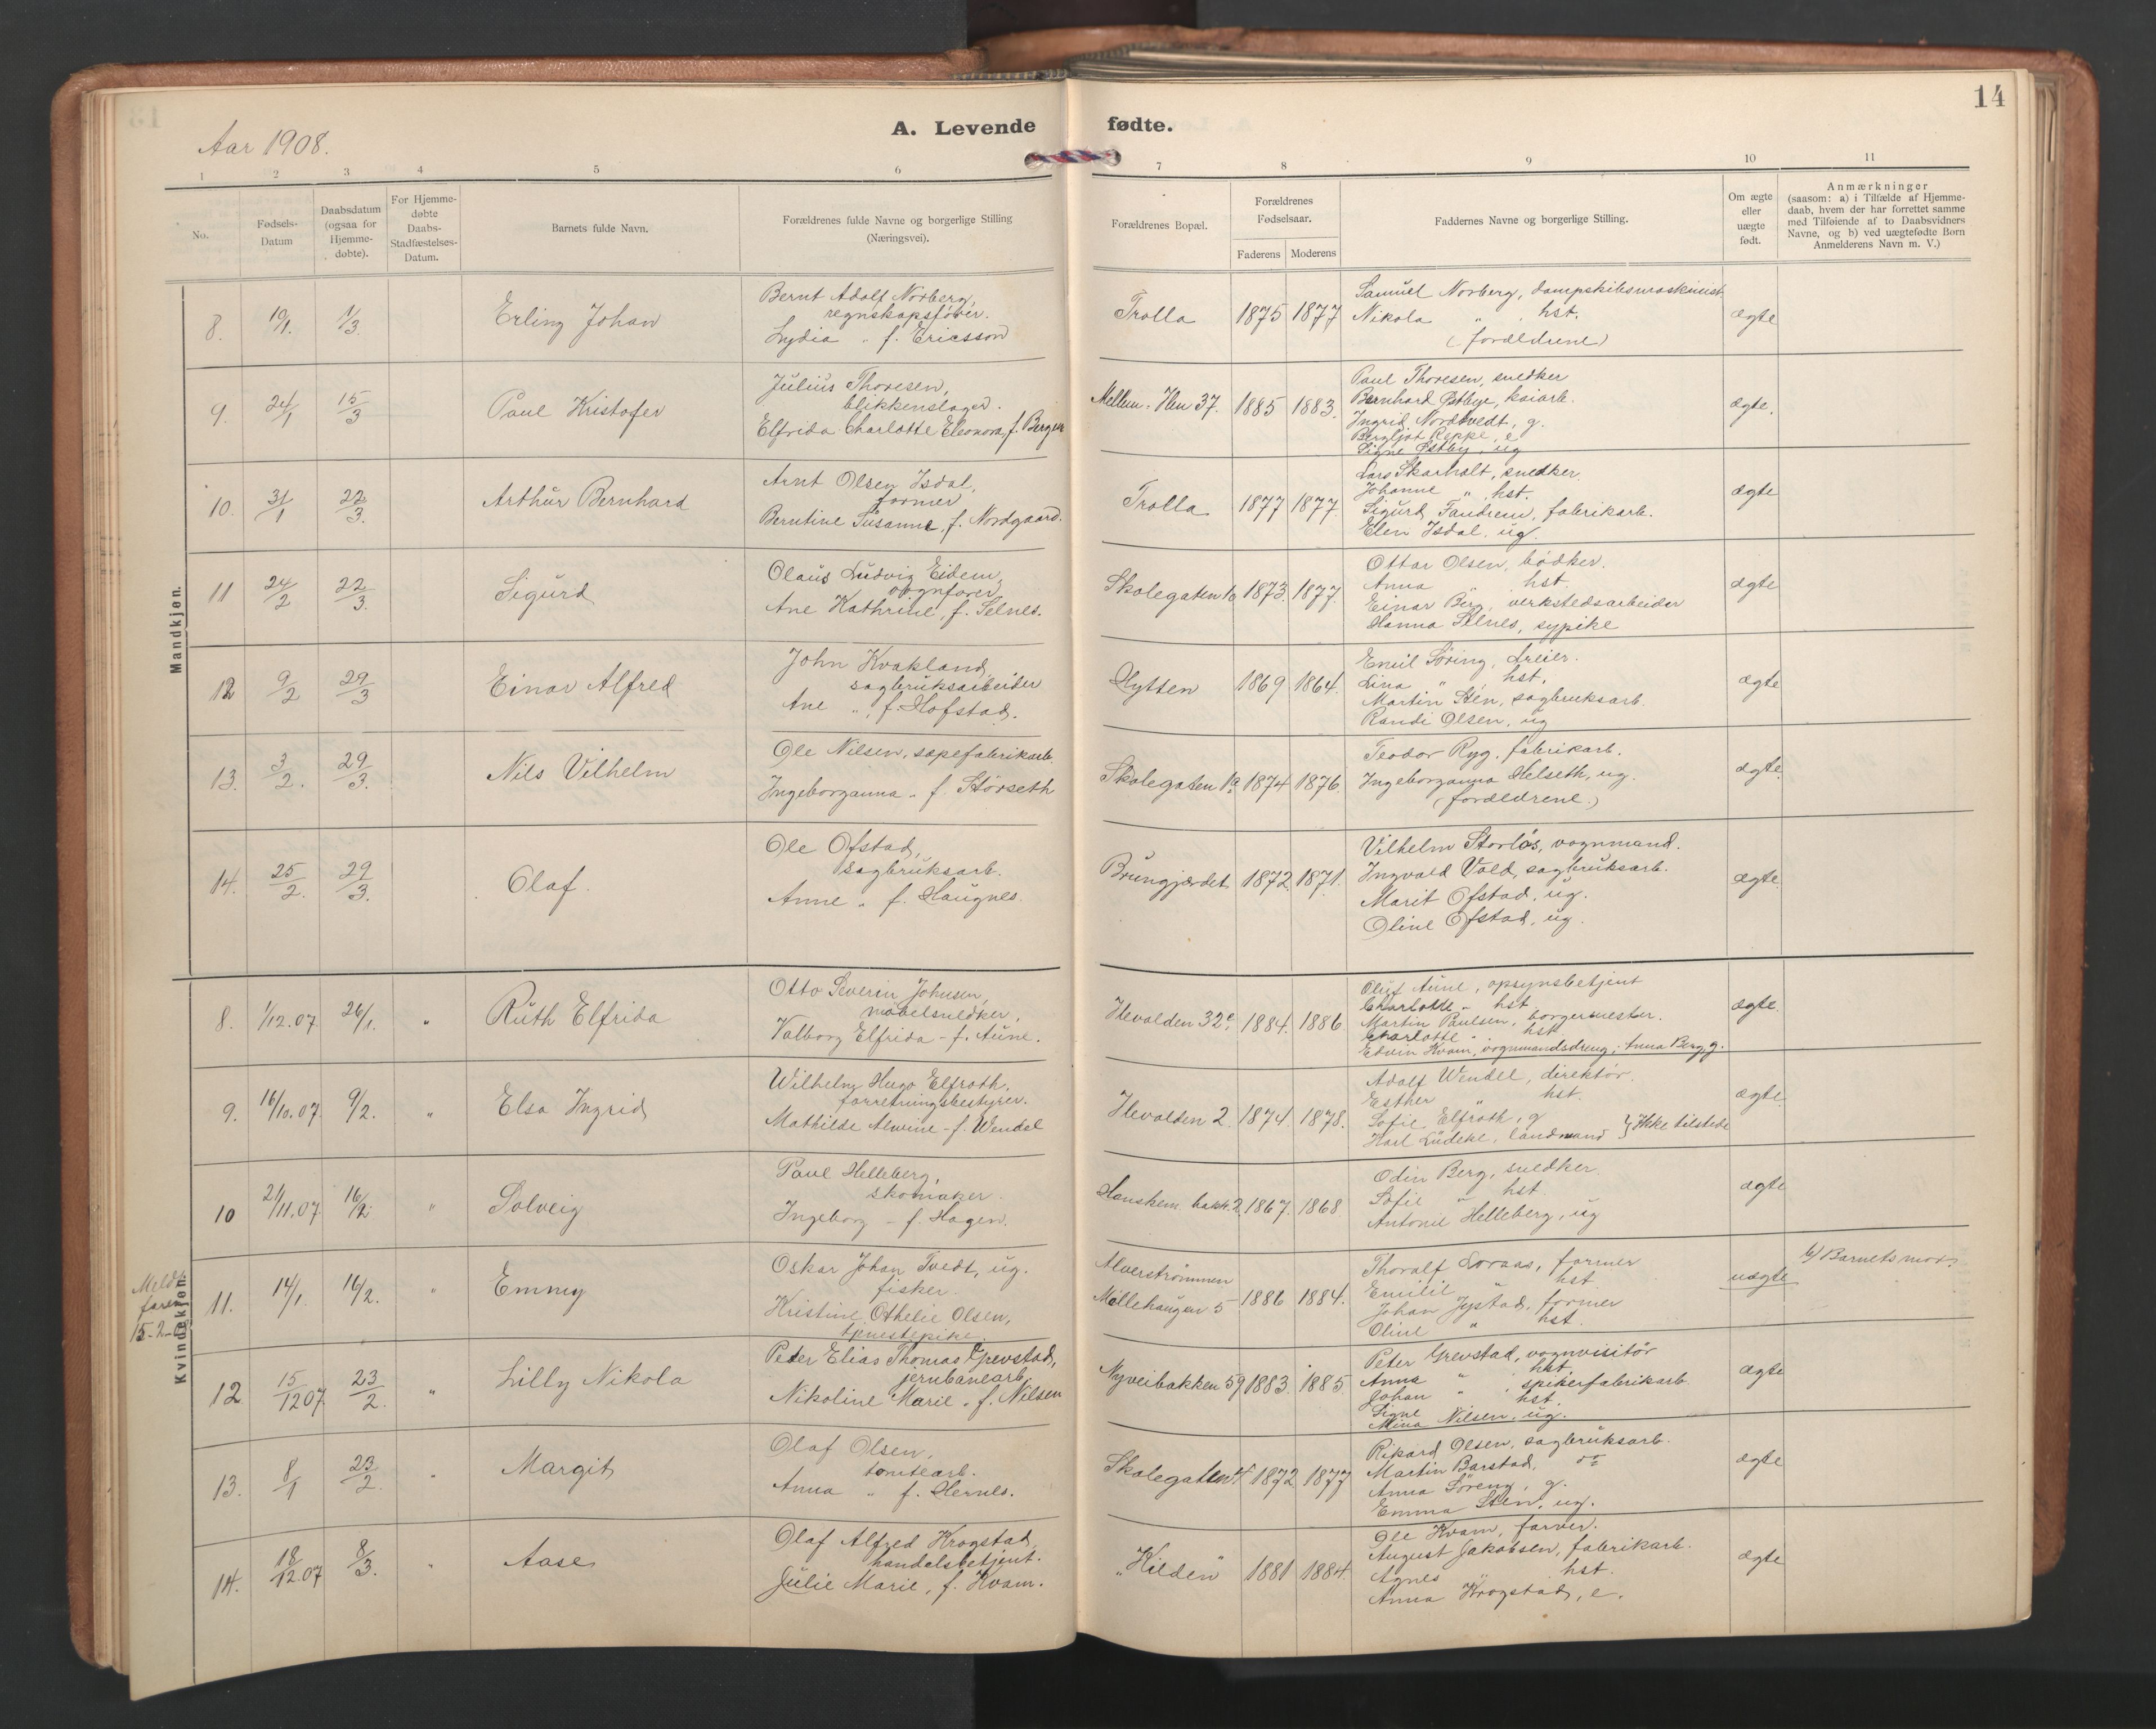 14
Aar 1908.
A. Levende fødte.
1 2 3 4 5 6 7 8 9 10 11
No.
Fødsels-
Datum
Daabsdatum
(ogsaa for
Hjemme-
døbte).
For Hjemme-
døbte
Daabs-
Stadfæstelses-
Datum.
Barnets fulde Navn.
Forældrenes fulde Navne og borgerlige Stilling
(Næringsvei).
Forældrenes Bopæl.
Forældrenes
Fødselsaar.
Faderens Moderens
Faddernes Navne og borgerlige Stilling.
Om ægte
eller
uægte
født.
Anmærkninger
(saasom: a) i Tilfælde af Hjemme-
daab, hvem der har forrettet samme
med Tilføiende af to Daabsvidners
Navne, og b) ved uægtefødte Børn
Anmelderens Navn m. V.)
Mandkjøn.
8. 10/1. 1/3. Erling Johan
Bernt Adolf Norberg,
regnskapsfører.
Lydia " f. Ericsson
Trolla 1875 1877
Samuel Norberg, dampskibsmaskinist
Nikola " , hst.
(forældrene)
ægte
9. 24/1 15/3 Paul Kristofer
Julius Thoresen,
blikkenslager.
Elfrida Charlotte Eleonora, f. Bergen
Mellem-Ilen 37. 1885 1883.
Paul Thoresen, snedker
Bernhard Østbye, kaiarb.
Ingrid Nordtvedt, g.
Bergljot Reppe, e
Signe Østby, ug
ægte.
10. 31/1 22/3. Arthur Bernhard
Arnt Olsen Isdal,
former
Berntine Susanne, f. Nordgaard.
Trolla 1877 1877.
Lars Skarholt, snedker
Johanne " , hst.
Sigurd Fandrem, fabrikarb.
Elen Isdal, ug.
ægte
11 24/2 22/3. Sigurd
Olaus Ludvig Eidem,
vognfører
Ane Kathrine, f. Selnes.
Skolegaten 1a 1873. 1877.
Ottar Olsen, bødker.
Anna " hst
Einar Berg, verkstedsarbeider
Hanna Selnes, sypike
ægte
12 9/2 29/3 Einar Alfred
John Kvakland,
sagbruksarbeider
Ane " , f. Hofstad.
Hytten 1869 1864.
Emil Søring, dreier.
Lina " , hst.
Martin Stén, sagbruksarb.
Randi Olsen, ug
ægte
13. 3/2. 29/3. Nils Vilhelm
Ole Nilsen, sæpefabrikarb.
Ingeborganna " f. Størseth
Skolegaten 1a 1874 1876.
Teodor Ryg, fabrikarb.
Ingeborganna Helseth, ug.
(forældrene.)
ægte.
14. 25/2. 29/3. Olaf.
Ole Ofstad,
sagbruksarb.
Anne " f. Haugnes.
Brungjærdet 1872. 1871.
Vilhelm Storløs, vognmand.
Ingvald Vold, sagbruksarb.
Marit Ofstad, ug.
Oline Ofstad, ug.
ægte.
Kvindekjøn.
8. 1/12.07 26/1. " Ruth Elfrida
Otto Severin Johnsen,
møbelsnedker,
Valborg Elfrida - f. Aune.
Ilevolden 32c. 1884. 1886.
Oluf Aune, opsynsbetjent
Charlotte - hst
Martin Paulsen, borgermester.
Charlotte " hst
Edvin Kvam, vognmandsdreng, Anna Berg, g.
ægte.
9. 16/10.07 9/2. " Elsa Ingrid
Wilhelm Hugo Elfroth,
forretningsbestyrer.
Mathilde Alwine - f. Wendel
Ilevolden 2. 1874. 1878.
Adolf Wendel, direktør.
Esther " hst.
Sofie Elfroth, g
Karl Lüdeke, landmand } Ikke tilstede
ægte.
10 21/11.07 16/2 " Solveig
Paul Helleberg,
skomaker.
Ingeborg - f. Hagen.
Hanskem. bakk. 2. 1867. 1868
Odin Berg, snedker.
Sofie " hst.
Antonie Helleberg, ug
ægte
Meldt
faren
15-2-
11. 14/1. 16/2. " Emmy
Oskar Johan Tvedt, ug.
fisker.
Kristine Othelie Olsen,
tjenestepike.
Alverstrømmen
Møllehaugen 5 1886 1884.
Thoralf Loraas, former
Emilie " hst
Johan Jystad, former
Oline " hst.
uægte
b) Barnets mor.
12 15/12 07. 23/2. " Lilly Nikola
Peder Elias Thomas Grevstad,
jernbanearb.
Nikoline Marie " f. Nilsen
Nyveibakken 59 1883. 1885.
Peter Grevstad, vognvisitør
Anna " hst.
Johan " , spikerfabrikarb.
Signe hst.
Mina Nilsen, ug.
ægte
13. 8/1 23/2. " Margit
Olaf Olsen,
tomtearb.
Anna " f. Hernes.
Skolegaten 4 1872. 1877
Rikard Olsen, sagbruksarb.
Martin Barstad,
Anna Søreng, g.
Emma Sten, ug.
ægte
14. 18/12.07 8/3. " Aase
Olaf Alfred Krogstad,
handelsbetjent.
Julie Marie, f. Kvam.
"Kilden" 1881 1884.
Ole Kvam, farver.
August Jakobsen, fabrikarb.
Agnes " hst.
Anna Krogstad, e.
ægte